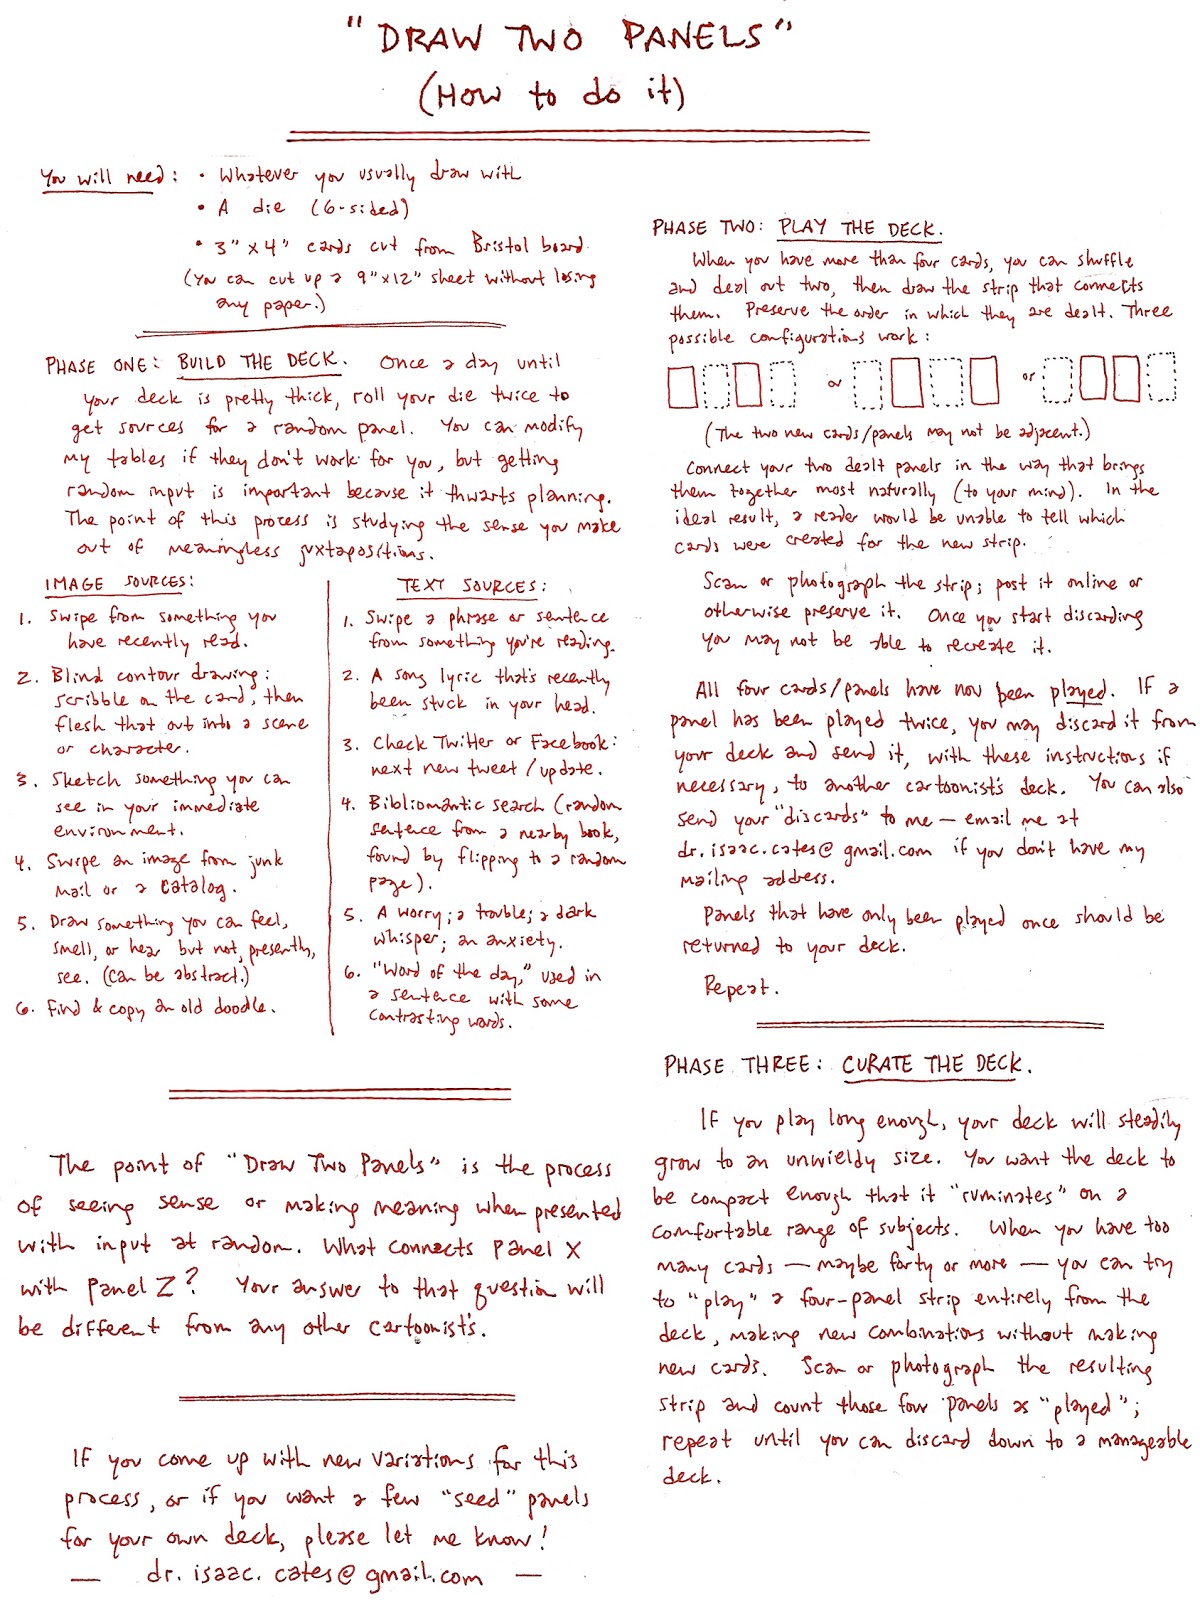 "DRAW TWO PANELS"
(How to do it)
You will need: • Whatever you usually draw with
• A die (6-sided)
• 3" x 4" cards cut from Bristol board.
(You can cut up a 9"x12" sheet without losing
any paper.)
PHASE ONE: BUILD THE DECK. Once a day until
your deck is pretty thick, roll your die twice to
get sources for a random panel. You can modify
my tables if they don't work for you, but getting
random input is important because it thwarts planning.
The point of this process is studying the sense you make
out of meaningless juxtapositions.
IMAGE SOURCES:
1. Swipe from something you
have recently read.
2. Blind contour drawing:
scribble on the card, then
flesh that out into a scene
or character.
3. Sketch something you can
see in your immediate
environment.
4. Swipe an image from junk
mail or a catalog.
5. Draw something you can feel,
smell, or hear but not, presently,
see. (Can be abstract.)
6. Find & copy an old doodle.
TEXT SOURCES:
1. Swipe a phrase or sentence
from something you're reading.
2. A song lyric that's recently
been stuck in your head.
3. Check Twitter or Facebook:
next new tweet / update.
4. Bibliomantic search (random
sentence from a nearby book,
found by flipping to a random
page).
5. A worry; a trouble; a dark
whisper; an anxiety.
6. "Word of the day," used in
a sentence with some
contrasting words.
The point of "Draw Two Panels" is the process
of seeing sense or making meaning when presented
with input at random. What connects Panel X
with Panel Z? Your answer to that question will
be different from any other cartoonist's.
If you come up with new variations for this
process, or if you want a few "seed" panels
for your own deck, please let me know!
— dr.isaac.cates@gmail.com —
PHASE TWO: PLAY THE DECK.
When you have more than four cards, you can shuffle
and deal out two, then draw the strip that connects
them. Preserve the order in which they are dealt. Three
possible configurations work:
or or
(The two new cards/panels may not be adjacent.)
Connect your two dealt panels in the way that brings
them together most naturally (to your mind). In the
ideal result, a reader would be unable to tell which
cards were created for the new strip.
Scan or photograph the strip; post it online or
otherwise preserve it. Once you start discarding
you may not be able to recreate it.
All four cards/panels have now been played. If a
panel has been played twice, you may discard it from
your deck and send it, with these instructions if
necessary, to another cartoonist's deck. You can also
send your "discards" to me — email me at
dr.isaac.cates@gmail.com if you don't have my
mailing address.
Panels that have only been played once should be
returned to your deck.
Repeat.
PHASE THREE: CURATE THE DECK.
If you play long enough, your deck will steadily
grow to an unwieldy size. You want the deck to
be compact enough that it "ruminates" on a
comfortable range of subjects. When you have too
many cards — maybe forty or more — you can try
to "play" a four-panel strip entirely from the
deck, making new combinations without making
new cards. Scan or photograph the resulting
strip and count those four panels as "played";
repeat until you can discard down to a manageable
deck.